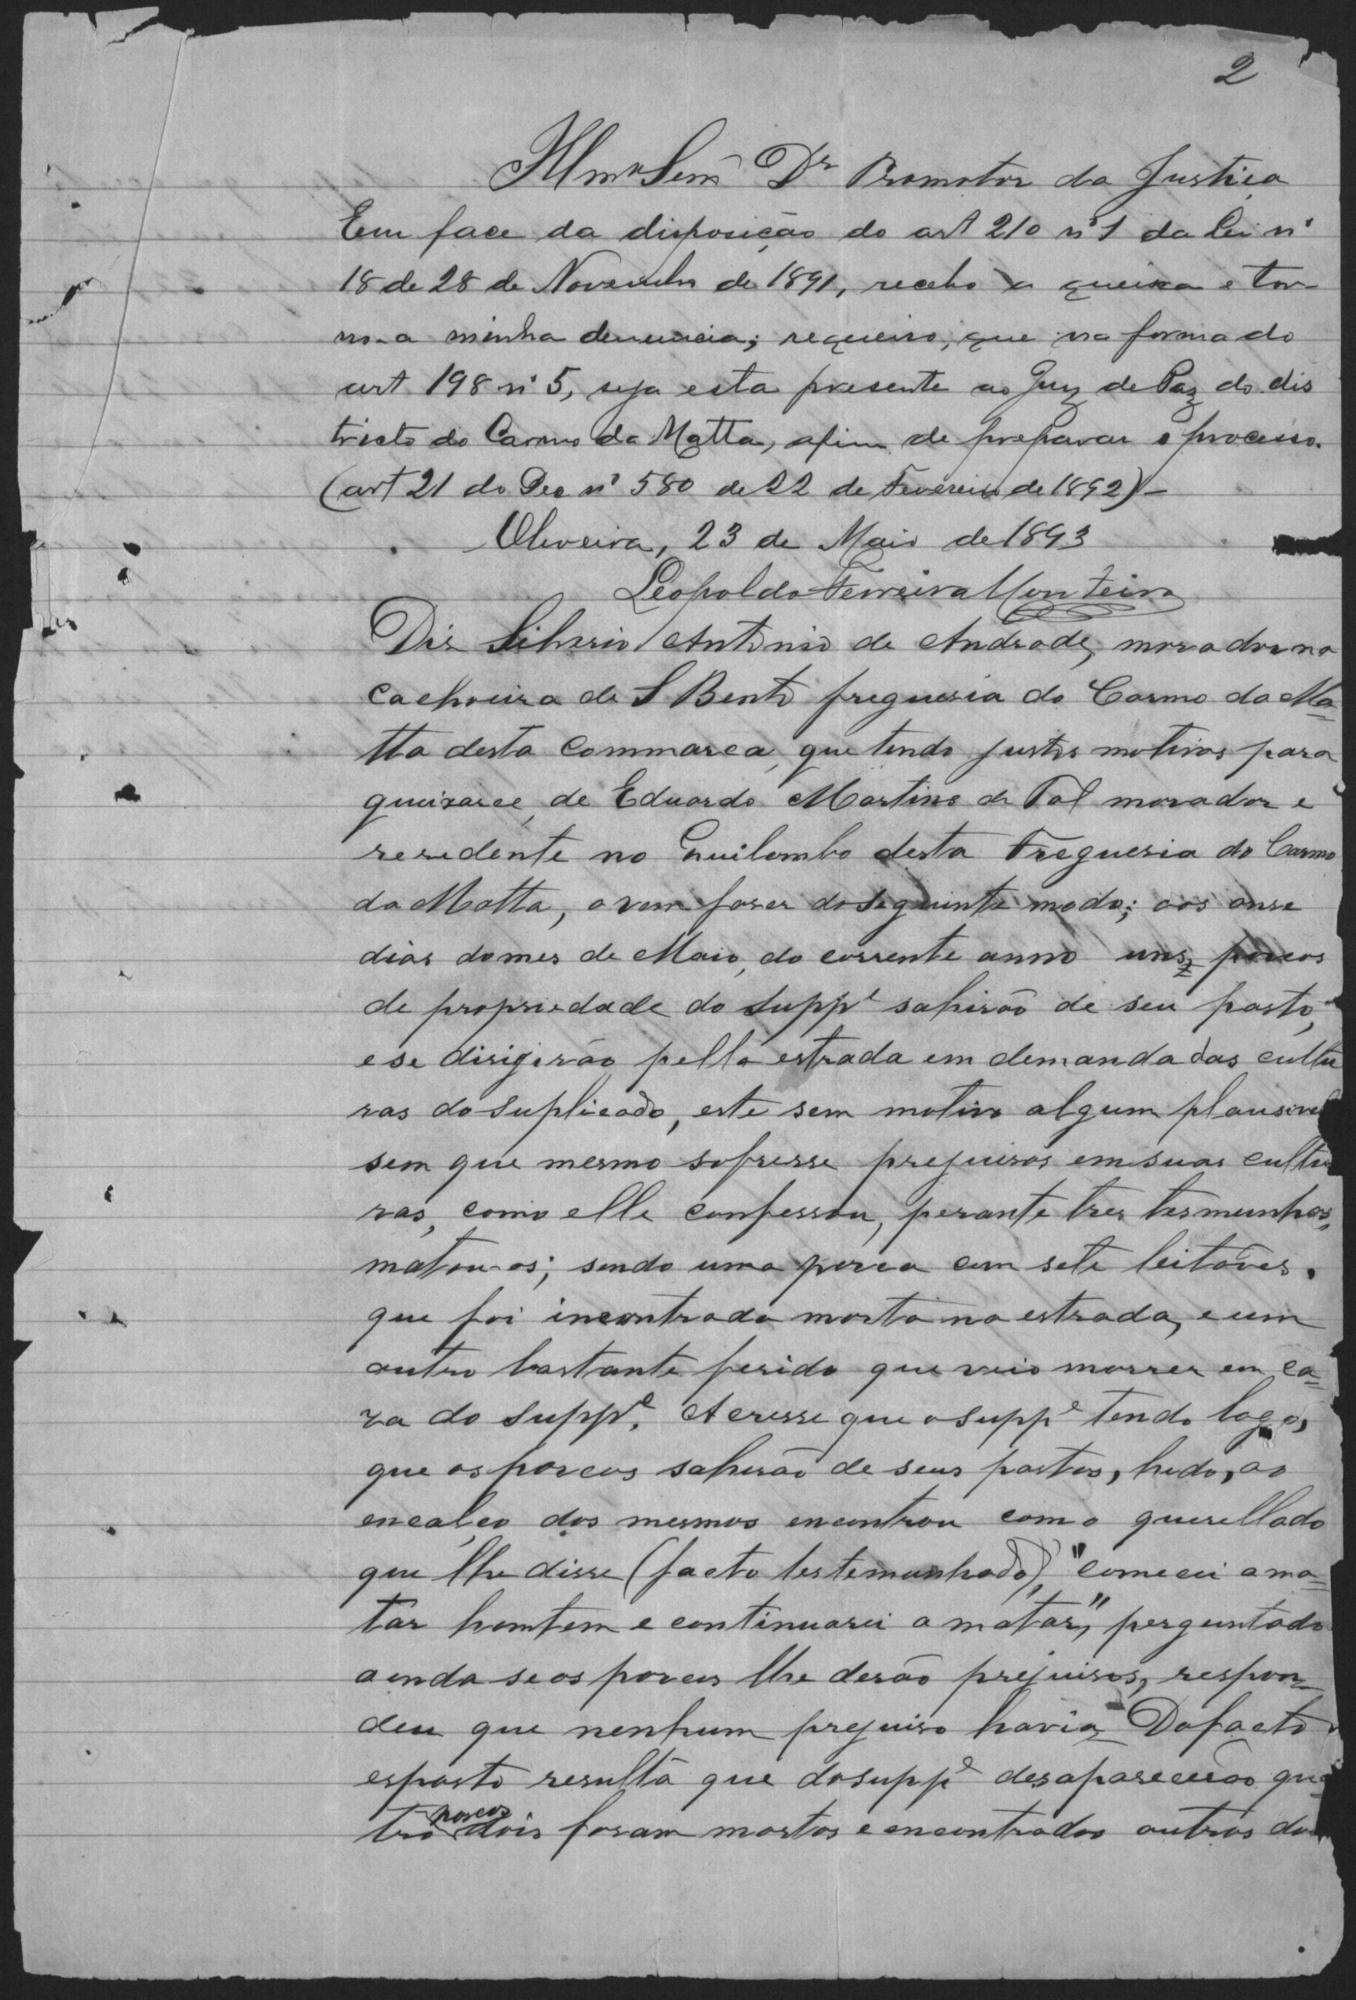 2
Illmº Senr Dr Promotor da Justiça
Em face da disposição do art 210 nº 1 da lei nº
18 de 28 de Novembro de 1891, recebo a queixa e tor-
no-a minha denuncia; requeiro, que na forma do
art 198 nº 5, seja esta presente ao Juiz de Paz do dis
tricto do Carmo da Matta, afim de preparar o processo.
(art 21 do Dec nº 580 de 22 de Fevereiro de 1892)-
Oliveira, 23 de Maio de 1893
Leopoldo Ferreira Monteiro
Diz Silverio Antonio de Andrade, morador na
Cachoeira de S Bento freguesia do Carmo da Ma=
tta desta Commarca, que tendo justos motivos para
queixarce, de Eduardo Martins de Tal morador e
resedente no Quilombo desta Freguesia do Carmo
da Matta, o vem faser do seguinte modo; aos onse
dias do mes de Maio, do corrente anno uns porcos
de propriedade do Suppe sahirão de seu pasto,
e se dirigirão pella estrada em demanda das cultu
ras do Suplicado, este sem motivo algum plausivel
sem que mesmo sofresse prejuisos em suas cultu
ras, como elle confessou, perante tres tesmunhas,
matou-os; sendo uma porca com sete leitões.
que foi incontrada morta na estrada, e um
outro bastante ferido que veio morrer em ca=
za do Suppe. Acresse que o Suppe tendo logo,
que os porcos sahirão de seus pastos, hido, ao
encalço dos mesmos encontrou com o querellado
que lhe disse (facto testemunhado), "comecei a ma=
tar hontem e continuarei a matar", perguntado
ainda se os porcos lhe derão prejuisos, respon-
deu que nenhum prejuiso havia, Do facto
esposto resulta que do Suppe desaparecerão qua
tro porcos dois foram mortos e encontrados outros do